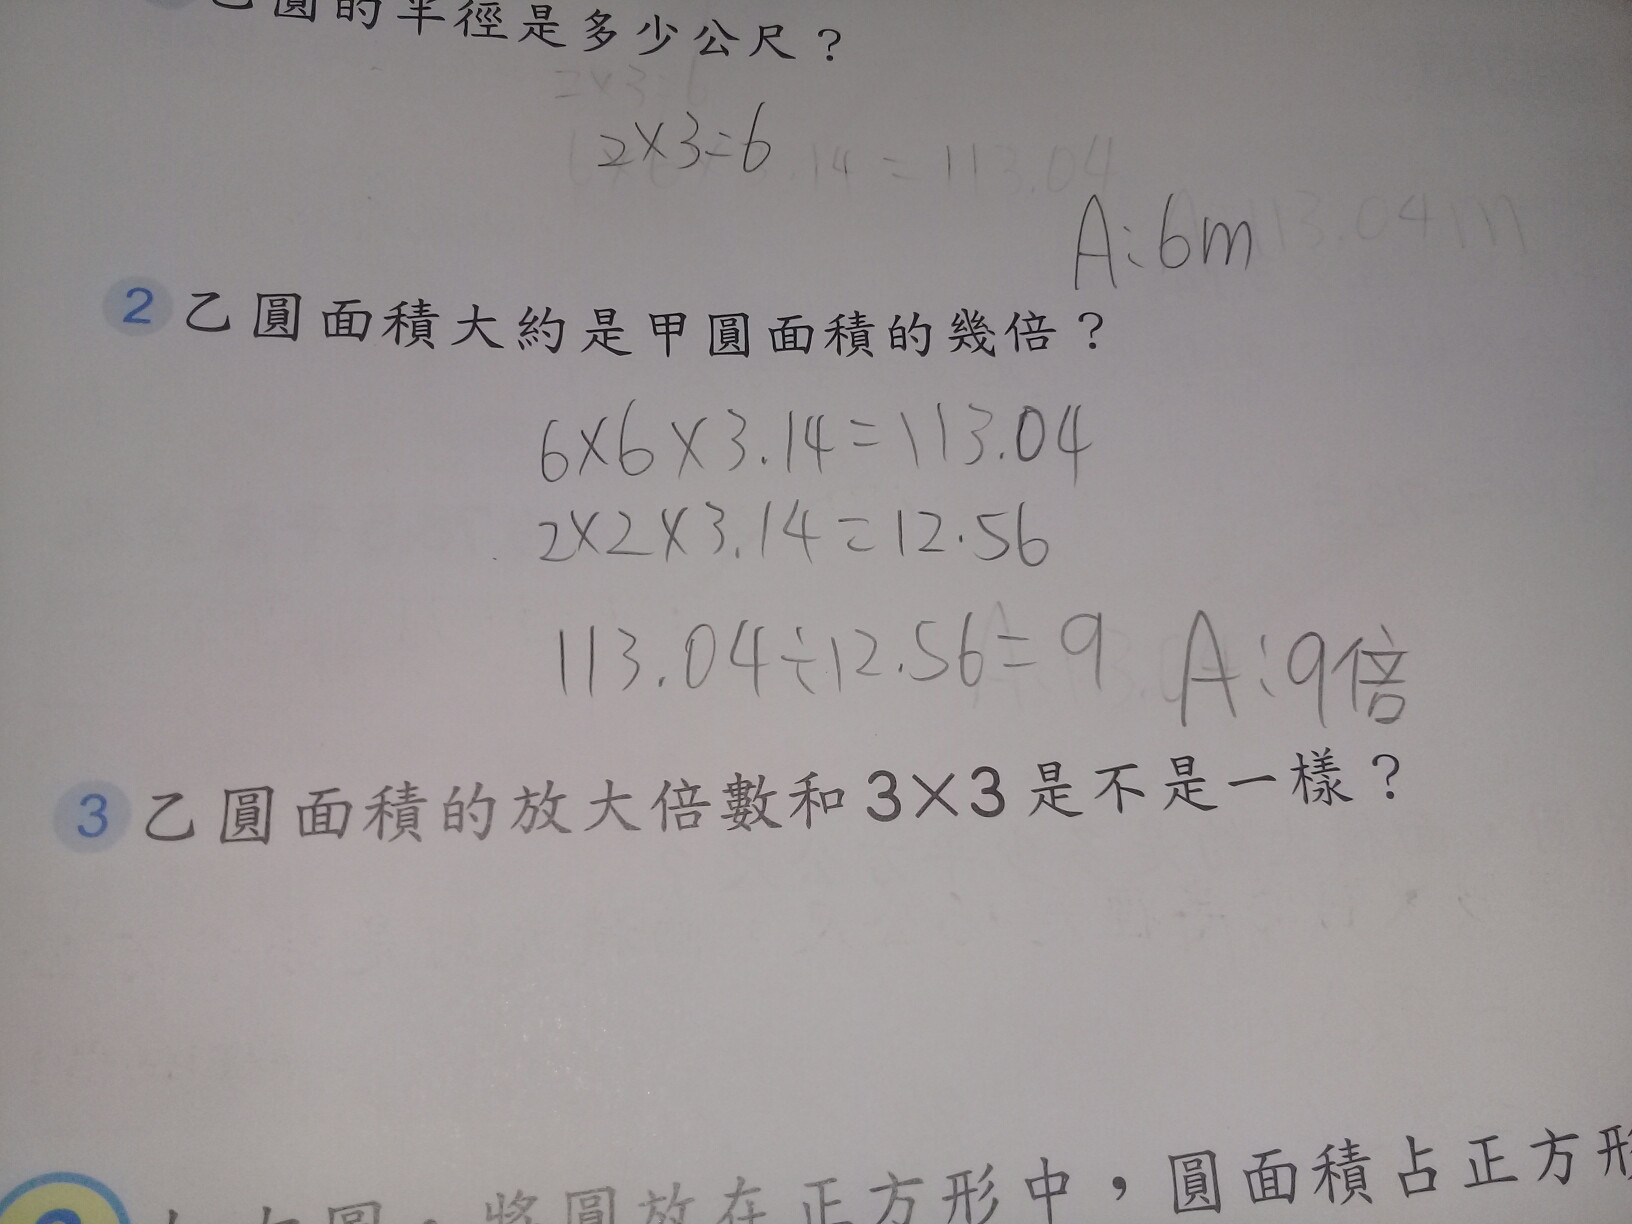 乙圓的半徑是多少公尺？
2×3=6
A:6m
2 乙圓面積大約是甲圓面積的幾倍？
6×6×3.14=113.04
2×2×3.14=12.56
113.04÷12.56=9 A:9倍
3 乙圓面積的放大倍數和3×3是不是一樣？
圓，將圓放在正方形中，圓面積占正方形